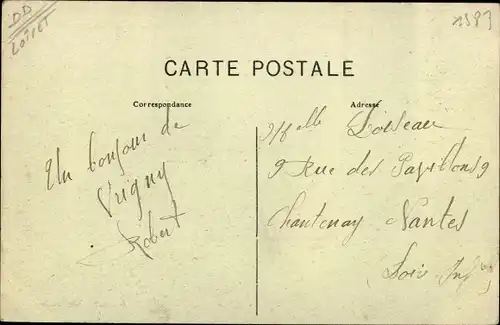 DD
LOIRET
CARTE POSTALE
Correspondance
Adresse
Un bonjour de
Vrigny
Robert
Melle Loiseau
9 Rue des Papillons 9
Chantenay Nantes
(Loire Infre)